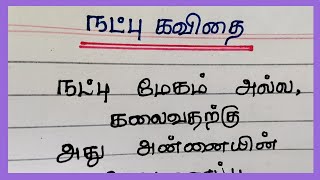 நட்பு கவிதை
நட்பு மேகம் அல்ல,
கலைவதற்கு
அது அன்னையின்